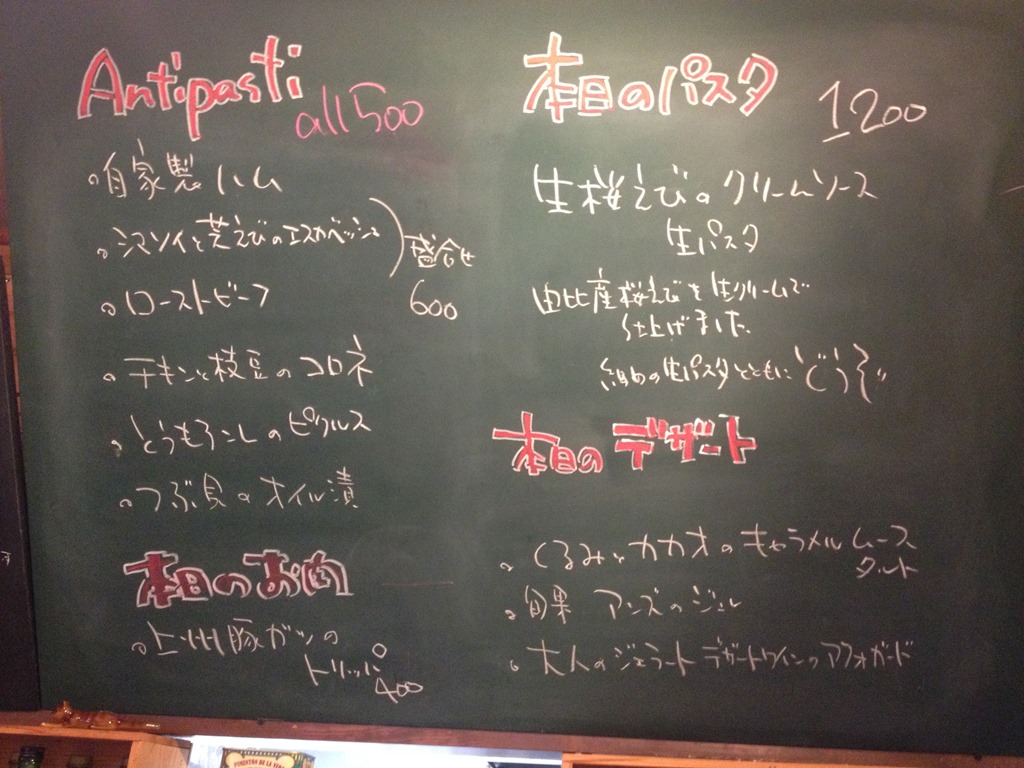 Antipasti all 500
。自家製ハム
。シマソイと芝えびのエスカベッシュ
。ローストビーフ
盛合せ
600
。チキンと枝豆のコロネ
。とうもろこしのピクルス
。つぶ貝のオイル漬
本日のお肉
。上州豚ガツの
トリッパ 400
本日のパスタ 1200
生桜えびのクリームソース
生パスタ
由比産桜えびを生クリームで
仕上げました。
細めの生パスタとともにどうぞ
本日のデザート
。くるみとカカオのキャラメルムース
タルト
。旬果 アンズのジュレ
。大人のジェラート デザートワインのアフォガード